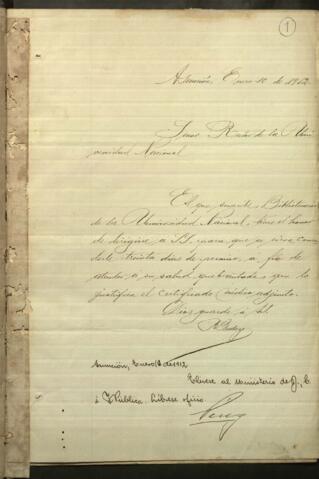 1
Asunción, Enero 10 de 1912
Señor Rector de la Uni-
versidad Nacional
El que suscribe, Bibliotecario
de la Universidad Nacional, tiene el honor
de dirigirse a S.S. para que se sirva conce-
derle treinta días de permiso, a fin de
atender a su salud quebrantada, que lo
justifica el certificado médico adjunto.
Dios guarde á S.S.
Asunción, Enero de 1912
Elévese al Ministerio de J., C.
é I. Pública. Líbrese oficio.